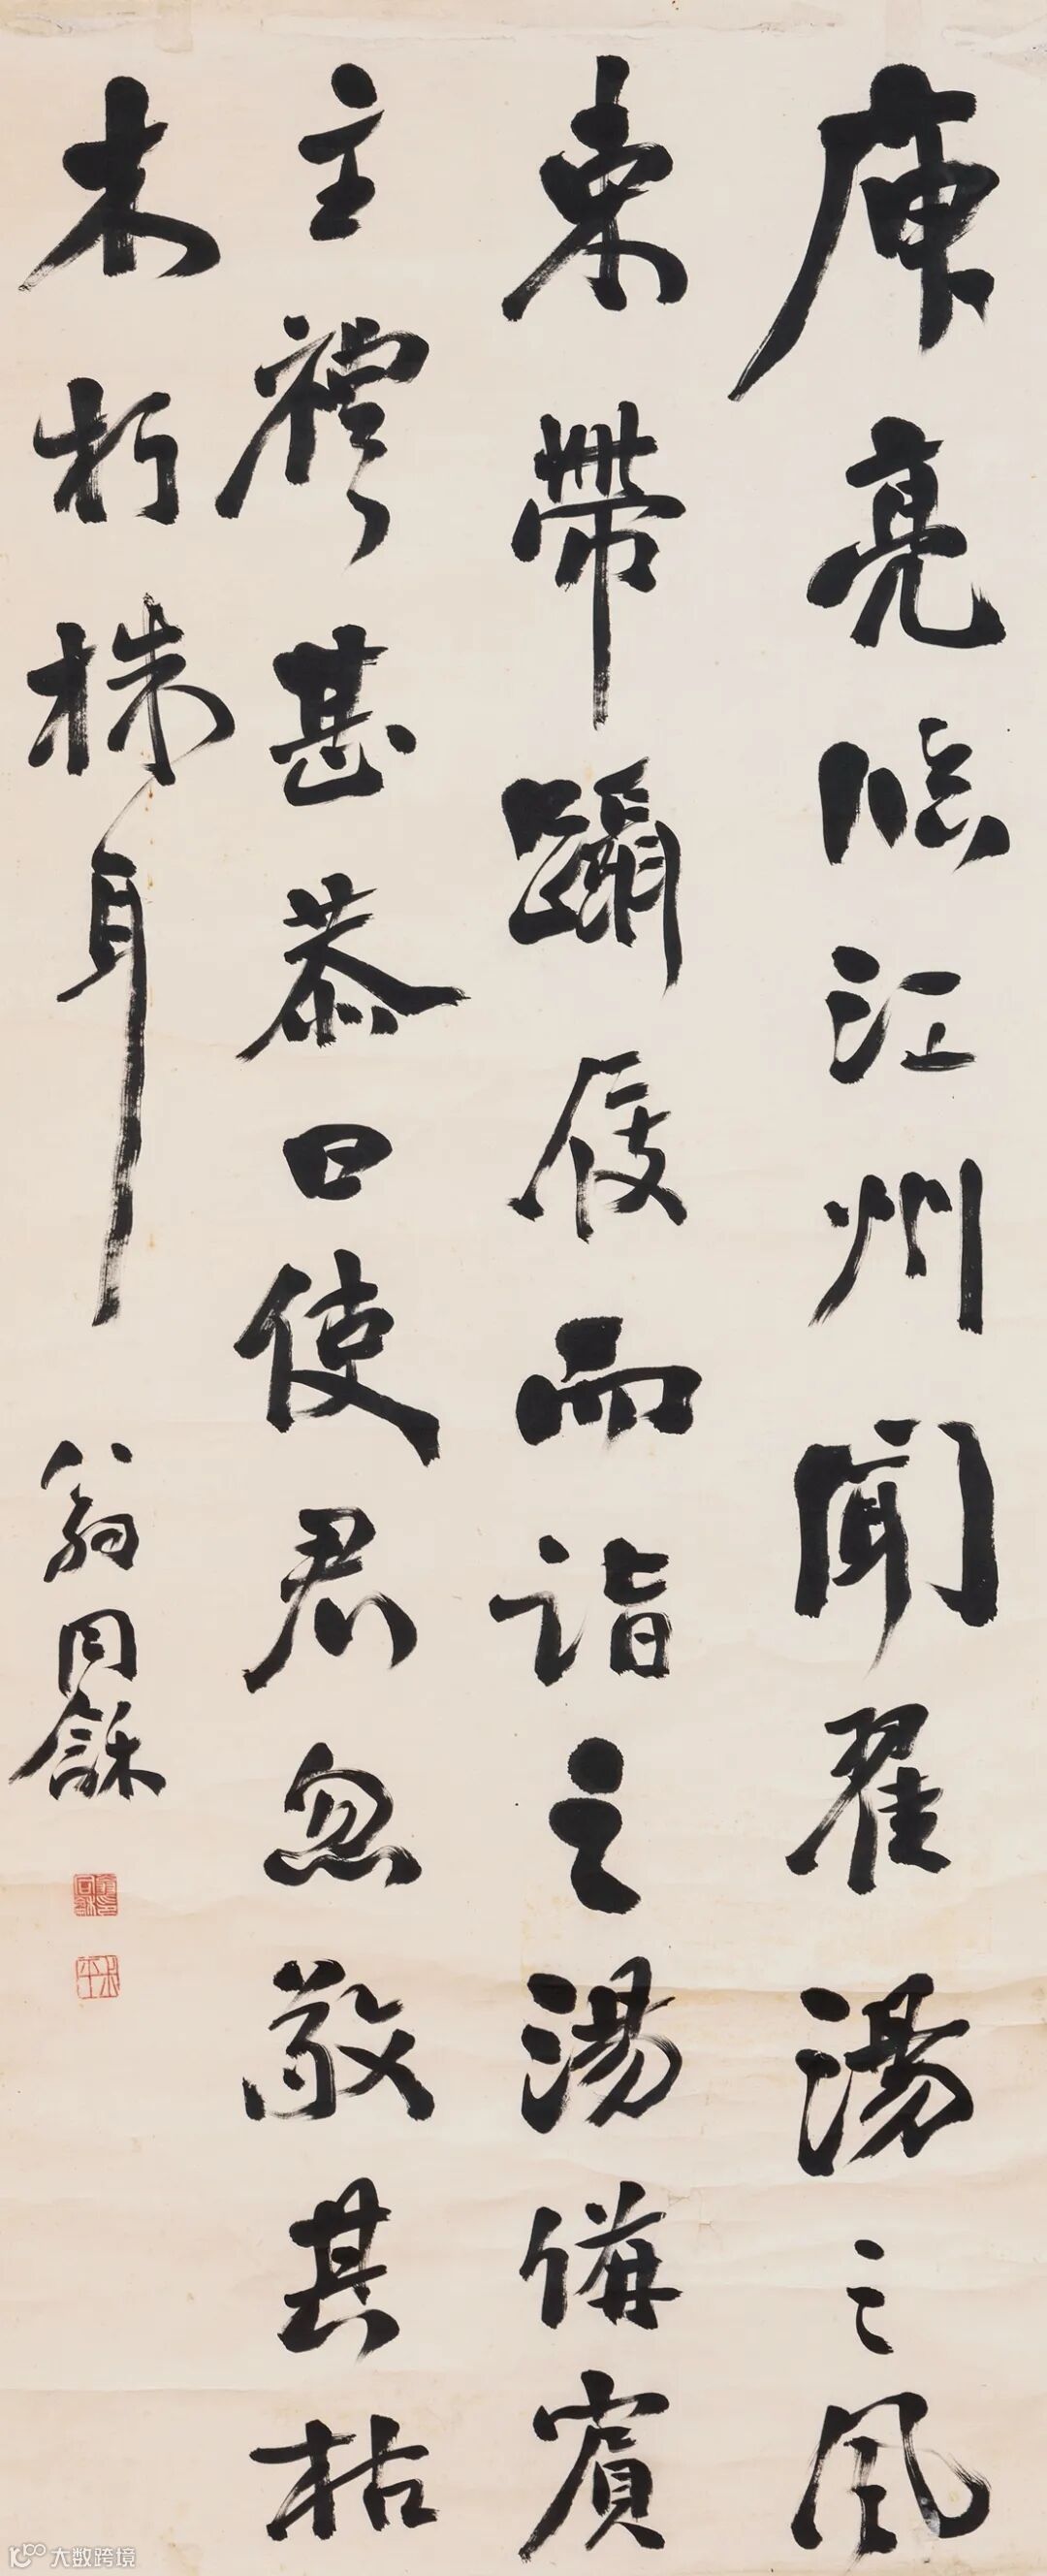 庾亮臨江州聞翟湯之風
束帶躡屐而詣之湯備賓
主禮甚恭曰使君忽敬其枯
木朽株耳
翁同龢
大数跨境